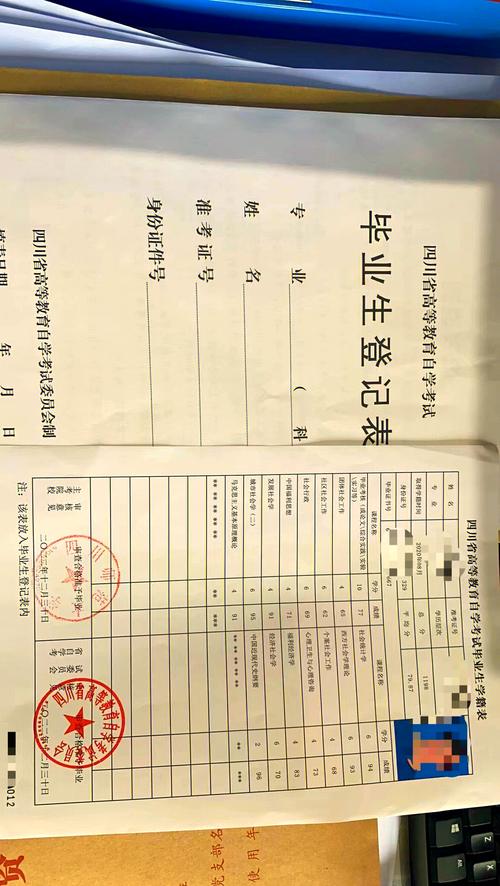 四川省高等教育自学考试
毕业生登记表
专 业 （ 科
姓 名
准考证号
身份证件号
四川省高等教育自学考试委员会制
年 月 日
四川省高等教育自学考试毕业生学籍表
姓 名 准考证号
专 业 学历层次
取得学籍时间 2020年08月 总 分 1198
身份证号 329 平 均 分 79.87
毕业证书号 667
课程名称 学分 成绩 课程名称 学分 成绩
毕业考核（或论文/综合实践/实验/实习等） 10 77 社会统计学 6 94
团体社会工作 4 65 西方社会学理论 6 93
社区社会工作 6 62 个案社会工作 4 68
社会行政 6 69 心理卫生与心理咨询 4 73
中国福利思想 4 71 福利经济学 4 83
发展社会学 4 91 经济社会学 6 70
城市社会学（二） 6 95 中国近现代史纲要 2 96
马克思主义基本原理概论 4 91 *** ** **
*** ** **
主考院校 审核意见 审查合格准予毕业 省自学考试委员会
二〇二二年十二月三十日 二〇二二年十二月三十日
四川省高等教育自学考试委员会
注：该表放入毕业生登记表内
0012
党支部名
使用年